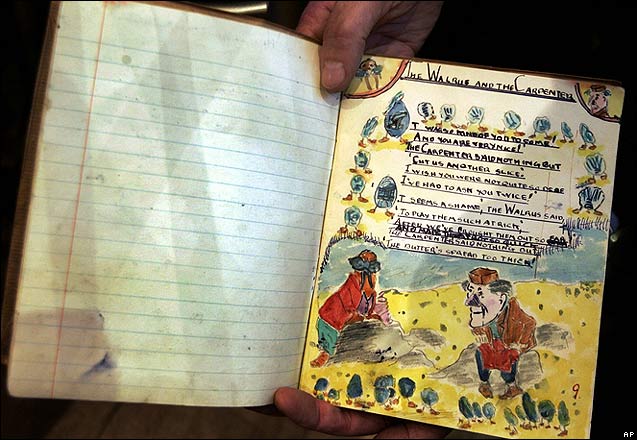 THE WALRUS AND THE CARPENTER
IT WAS SO KIND OF YOU TO COME!
AND YOU ARE VERY NICE!
THE CARPENTER SAID NOTHING BUT
'CUT US ANOTHER SLICE:
I WISH YOU WERE NOT QUITE SO DEAF
I'VE HAD TO ASK YOU TWICE!'
'IT SEEMS A SHAME', THE WALRUS SAID,
'TO PLAY THEM SUCH A TRICK,
AFTER WE'VE BROUGHT THEM OUT SO FAR
THE CARPENTER SAID NOTHING BUT
'THE BUTTER'S SPREAD TOO THICK!'
9.
AP